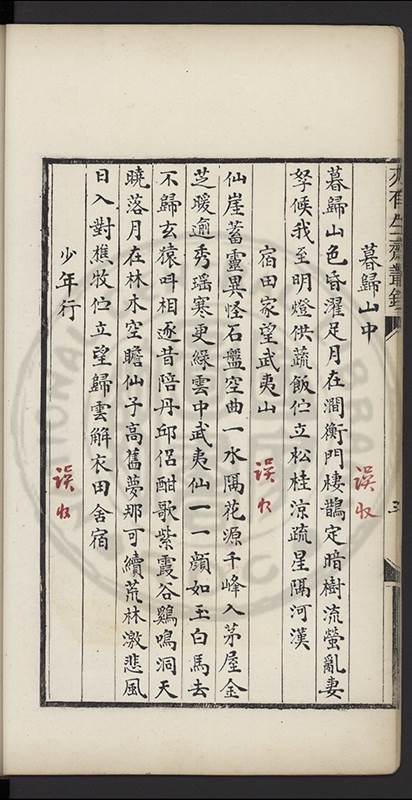 暮歸山中
誤收
暮歸山色昏濯足月在澗衡門棲鵲定暗樹流螢亂妻
孥候我至明燈供蔬飯伫立松桂涼疏星隔河漢
宿田家望武夷山
誤收
仙崖蓄靈異怪石盤空曲一水隔花源千峰入茅屋金
芝暖逾秀瑤寒更綠雲中武夷仙一一顏如玉白馬去
不歸玄猿呌相逐昔陪丹邱侶酣歌紫霞谷鷄鳴洞天
曉落月在林木空瞻仙子高舊夢那可續荒林激悲風
日入對樵牧伫立望歸雲解衣田舍宿
少年行
誤收